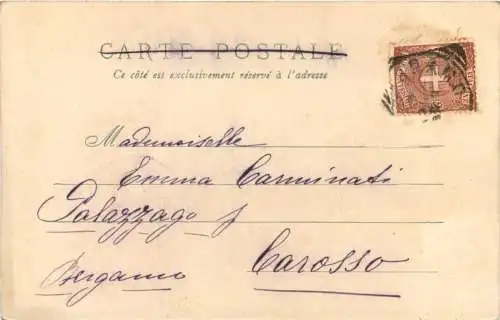 CARTE POSTALE
Ce côté est exclusivement réservé à l'adresse
Mademoiselle
Emma Carminati
Palazzago
Carosso
Bergamo